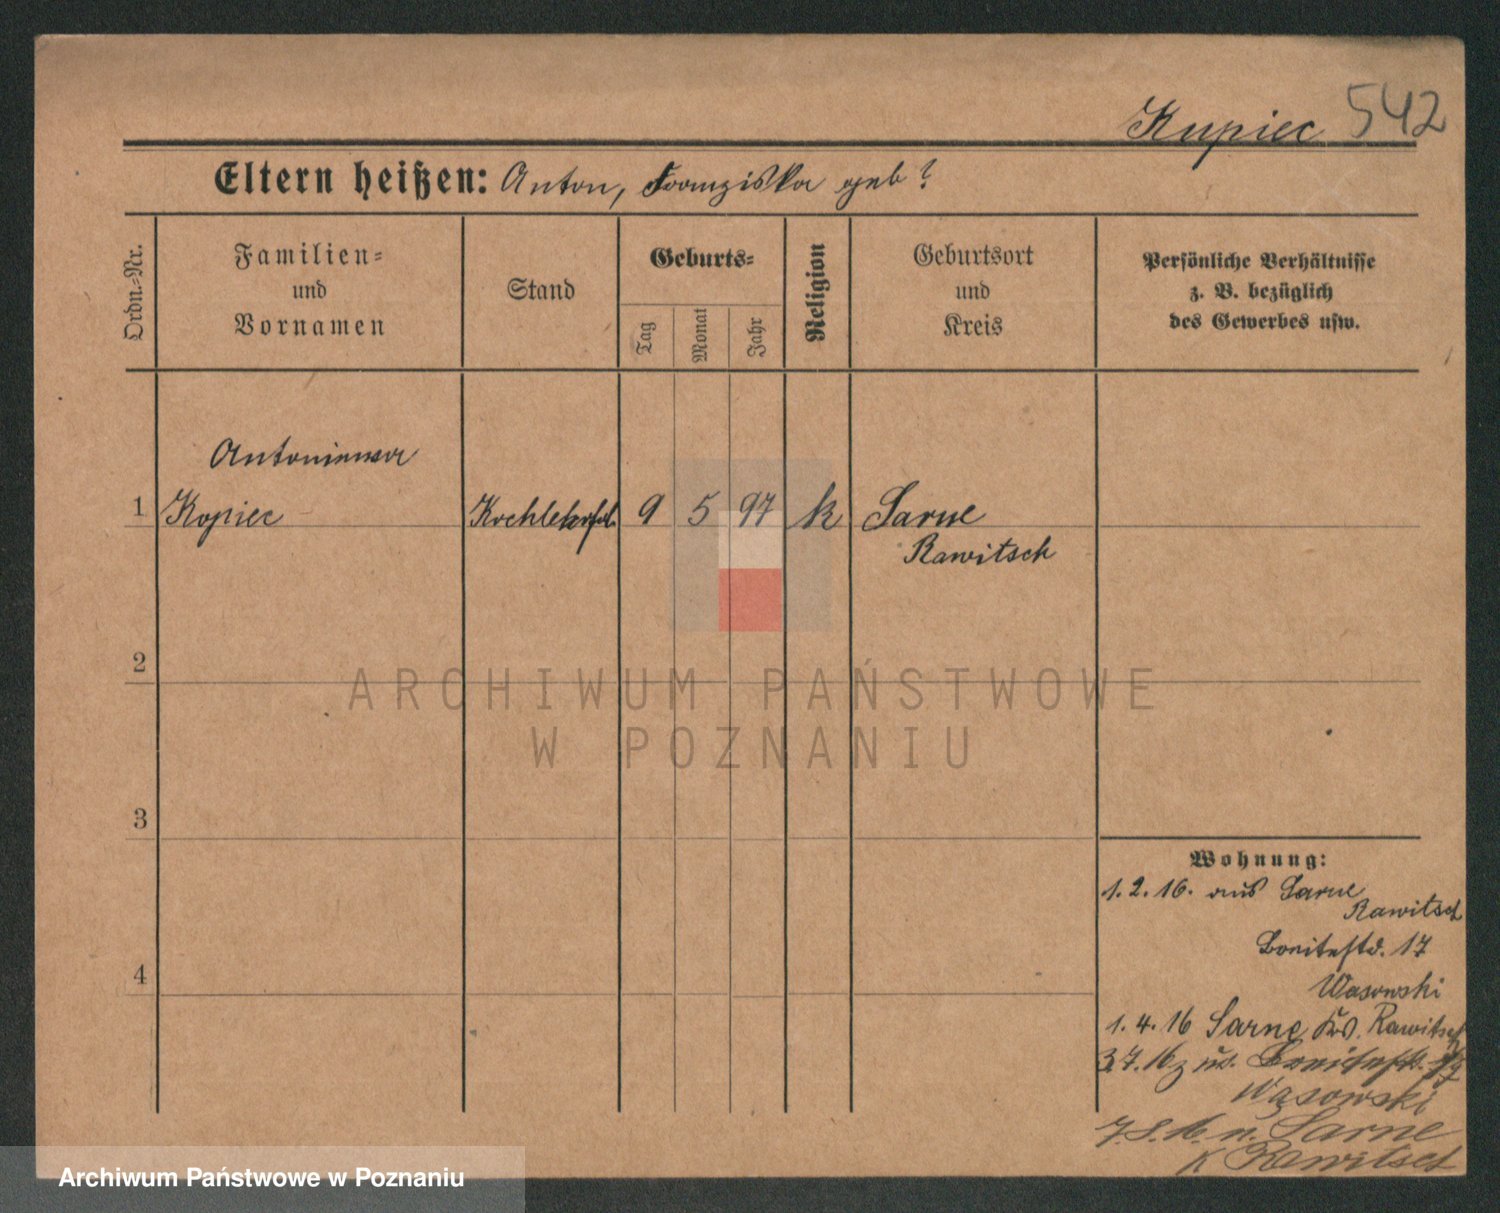 Kupiec 542
Eltern heißen: Anton, Franziska geb?
Ordn.-Nr.
Familien-
und
Vornamen
Stand
Geburts-
Tag
Monat
Jahr
Religion
Geburtsort
und
Kreis
Persönliche Verhältnisse
z. B. bezüglich
des Gewerbes usw.
Antonienna
1 Kopiec 9 5 97 k Sarne
Rawitsch
2
ARCHIWUM PAŃSTWOWE
W POZNANIU
3
4
Wohnung:
1.2.16. aus Sarne
Rawitsch
Breitestr. 17
Wasowski
1.4.16 Sarne Krs. Rawitsch
3.7.16 z us. Breitestr.
Wąsowski
7.8.16 n. Sarne
k Rawitsch
Archiwum Państwowe w Poznaniu